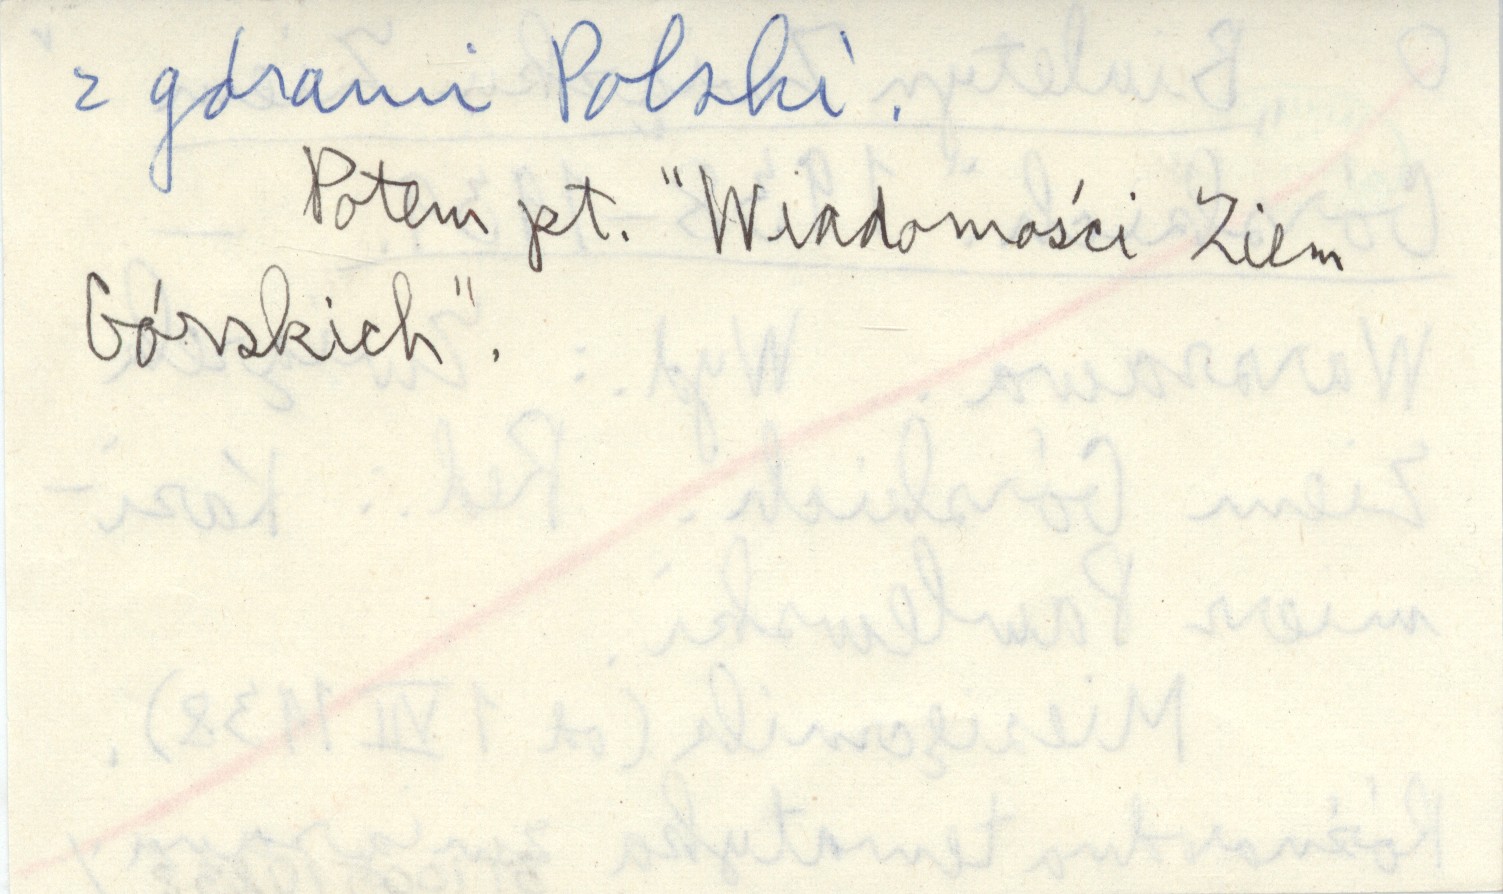 z górami Polski.
Potem pt. "Wiadomości Ziem
Górskich".